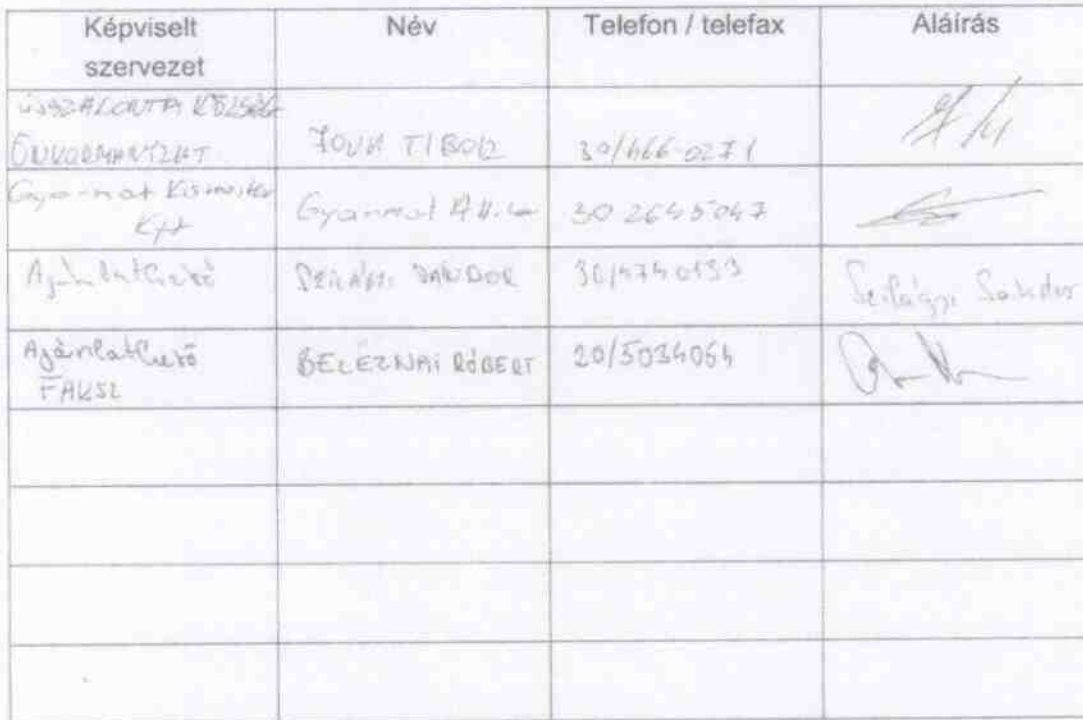 Képviselt szervezet Név Telefon / telefax Aláírás
ÚJSZALONTA KÖZSÉG
ÖNKORMÁNYZAT TIBOR 30/466-0271
Gyarmat Kismester Kft Gyarmat Attila 30 2645047
Ajánlatkérő SZILÁGYI SÁNDOR 30/4740133 Szilágyi Sándor
Ajánlatkérő BELÉZNAI RÓBERT 20/5034064
FAKSZ